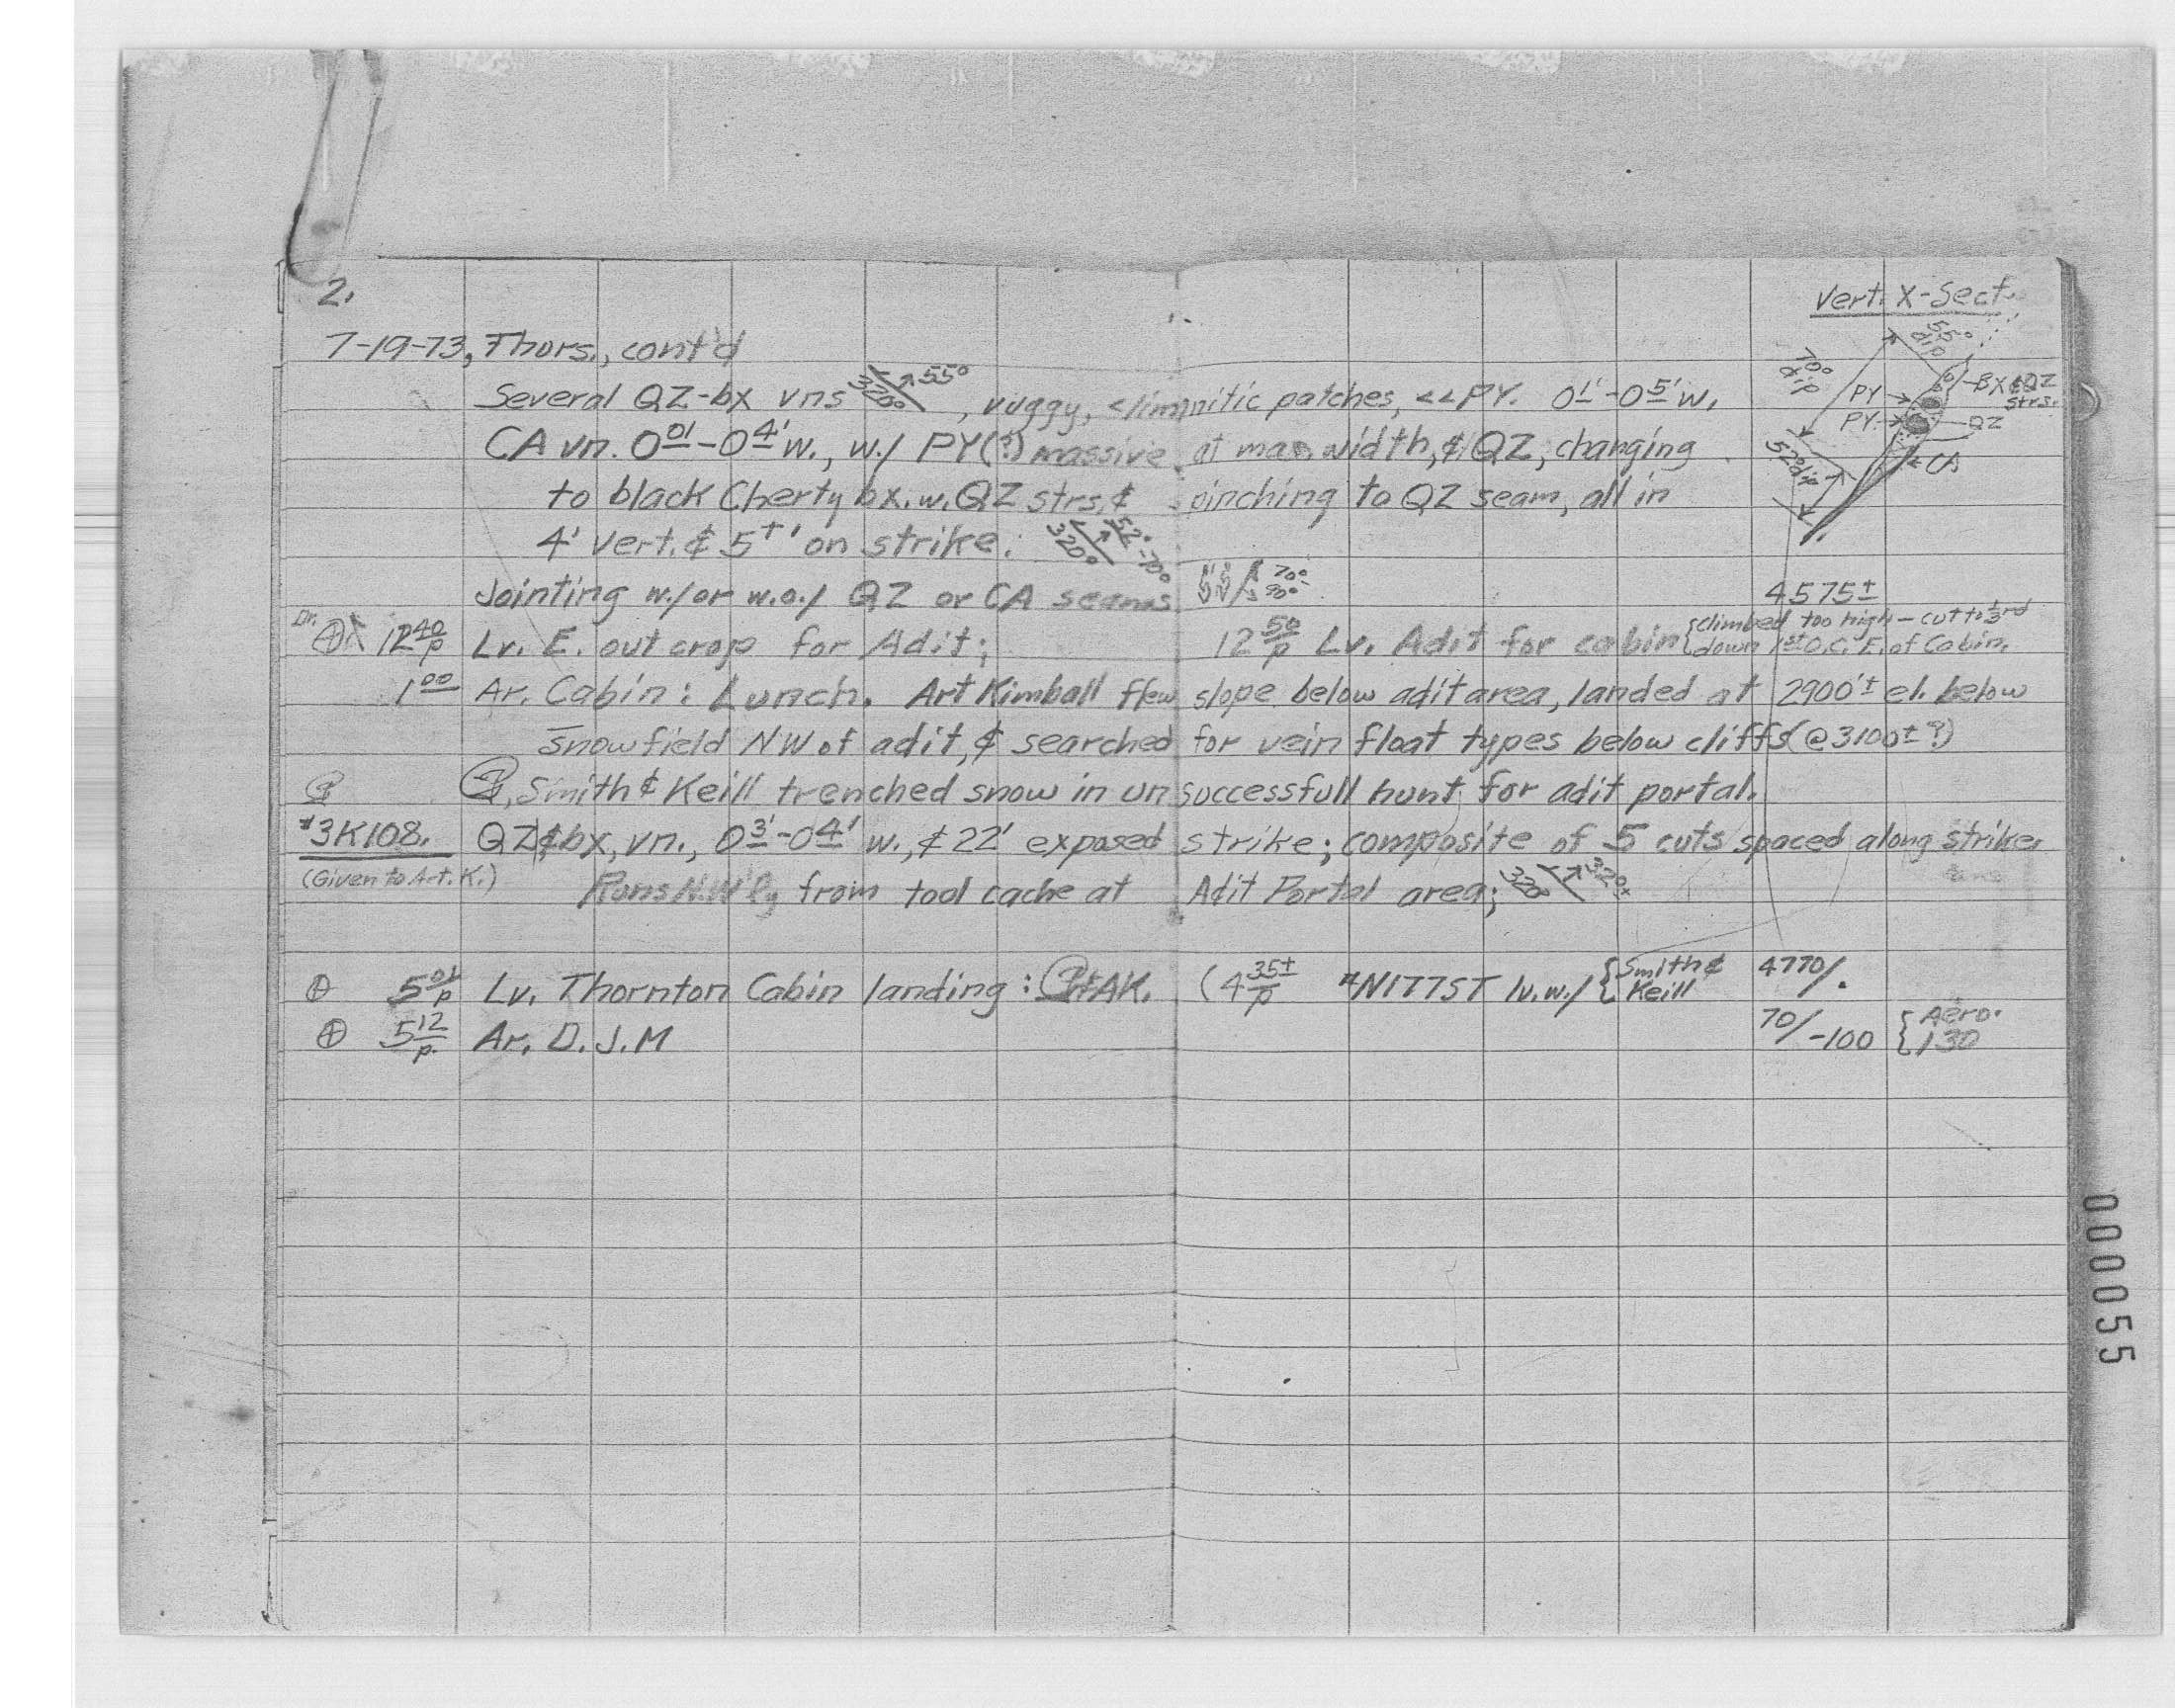 2.
Vert. X-Sect.
7-19-73, Thurs., cont'd
55° dip
70° dip
PY
BX & QZ strs.
PY
QZ
52° dip
CA
Several QZ-bx vns 320° 55°, vuggy, <limonitic patches, <<PY. 0.1'-0.5' w.
CA vn. 0.01'-0.4' w., w./ PY(?) massive at max. width, & QZ, changing
to black Cherty bx. w. QZ strs. & pinching to QZ seam, all in
4' vert. & 5+' on strike. 320° 52°-70°
Jointing w./or w.o./ QZ or CA seams 70°-90°
4575±
12 40/p Lv. E. outcrop for Adit; 12 50/p Lv. Adit for cabin {climbed too high - cut to
down 1st O.C. E. of Cabin.
1 00 Ar. Cabin: Lunch. Art Kimball flew slope below adit area, landed at 2900'± el. below
snowfield NW of adit, & searched for vein float types below cliffs (@3100±?)
Smith & Keill trenched snow in unsuccessfull hunt for adit portal.
#3K108. QZ & bx, vn., 0.3'-0.4' w., & 22' exposed strike; composite of 5 cuts spaced along strike.
(Given to Art. K.) Runs N.W'ly from tool cache at Adit Portal area; 320°
5 01/p Lv. Thornton Cabin landing: & AK. (4 35±/p #N177ST lv. w./ {Smith & Keill 4770/.
5 12/p. Ar. D.J.M 70/-100 {Aero. 130
000055